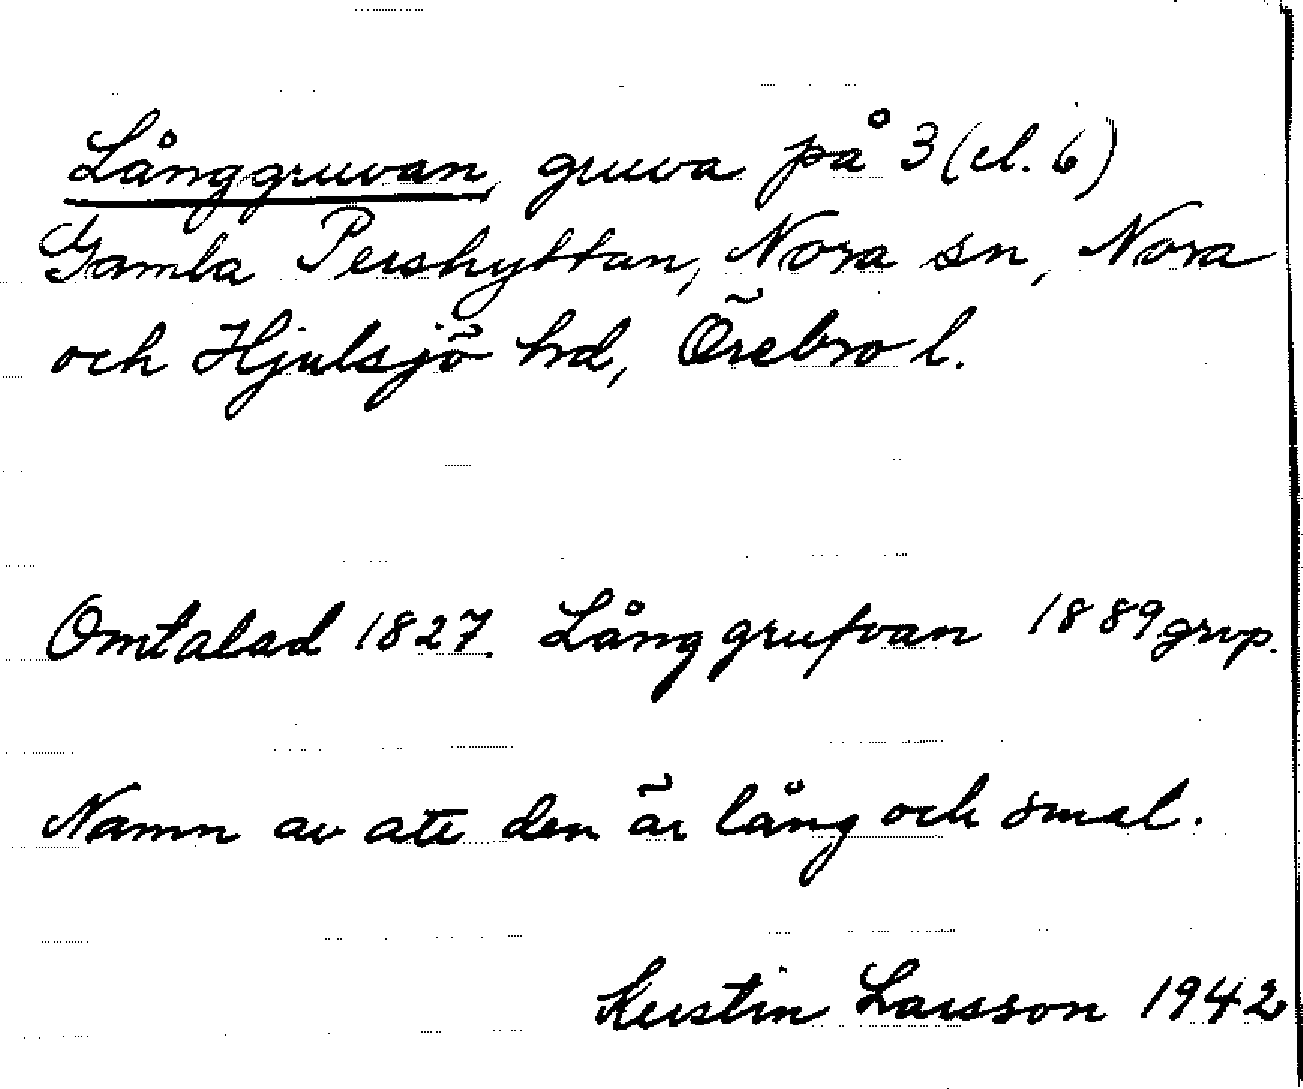 Långgruvan, gruva på 3 (el. 6)
Gamla Pershyttan, Nora sn, Nora
och Hjulsjö hd, Örebro l.
Omtalad 1827. Långgrufvan 1889 grvp.
Namn av att den är lång och smal.
Kerstin Larsson 1942